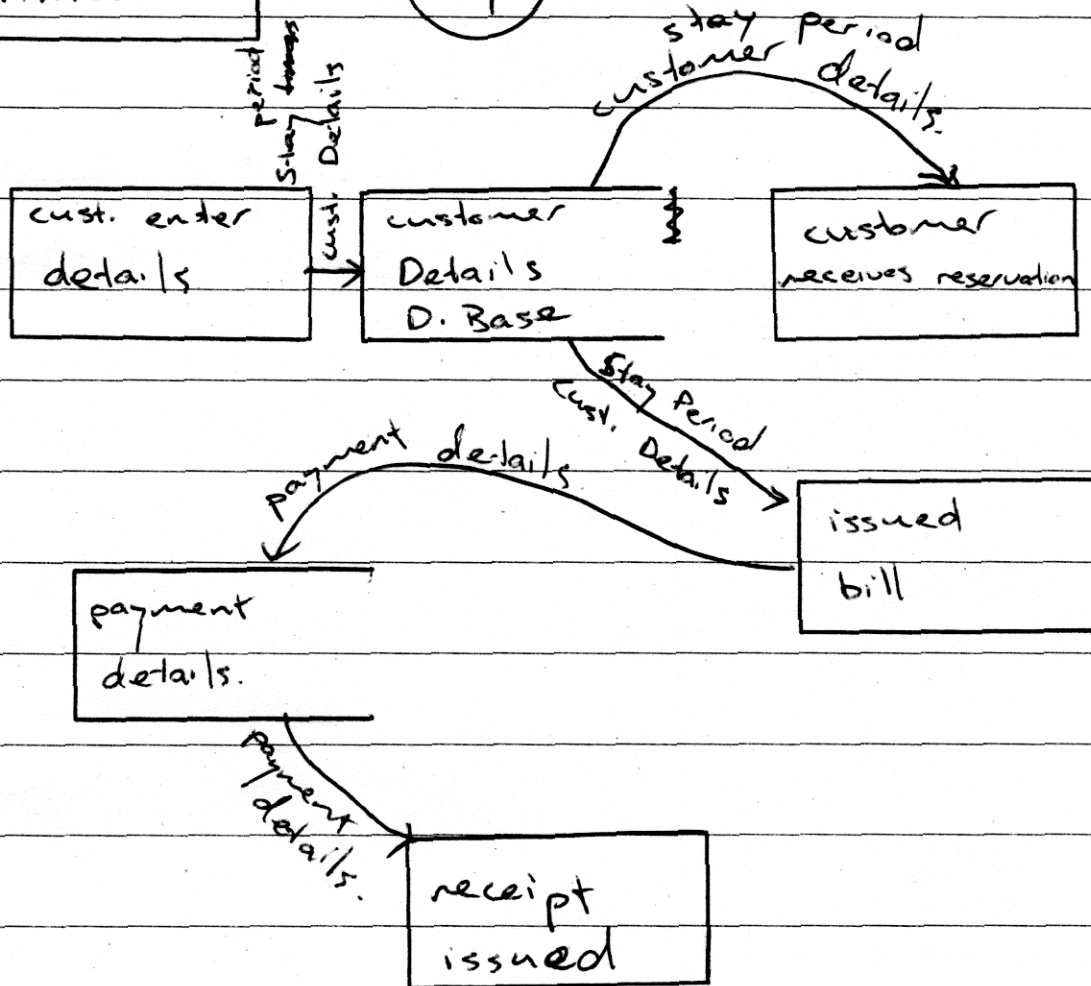 stay period
customer details.
period
Stay
cust. Details
cust. enter
details
customer
Details
D. Base
customer
receives reservation
Stay Period
Cust. Details
payment details
issued
bill
payment
details.
payment
details.
receipt
issued